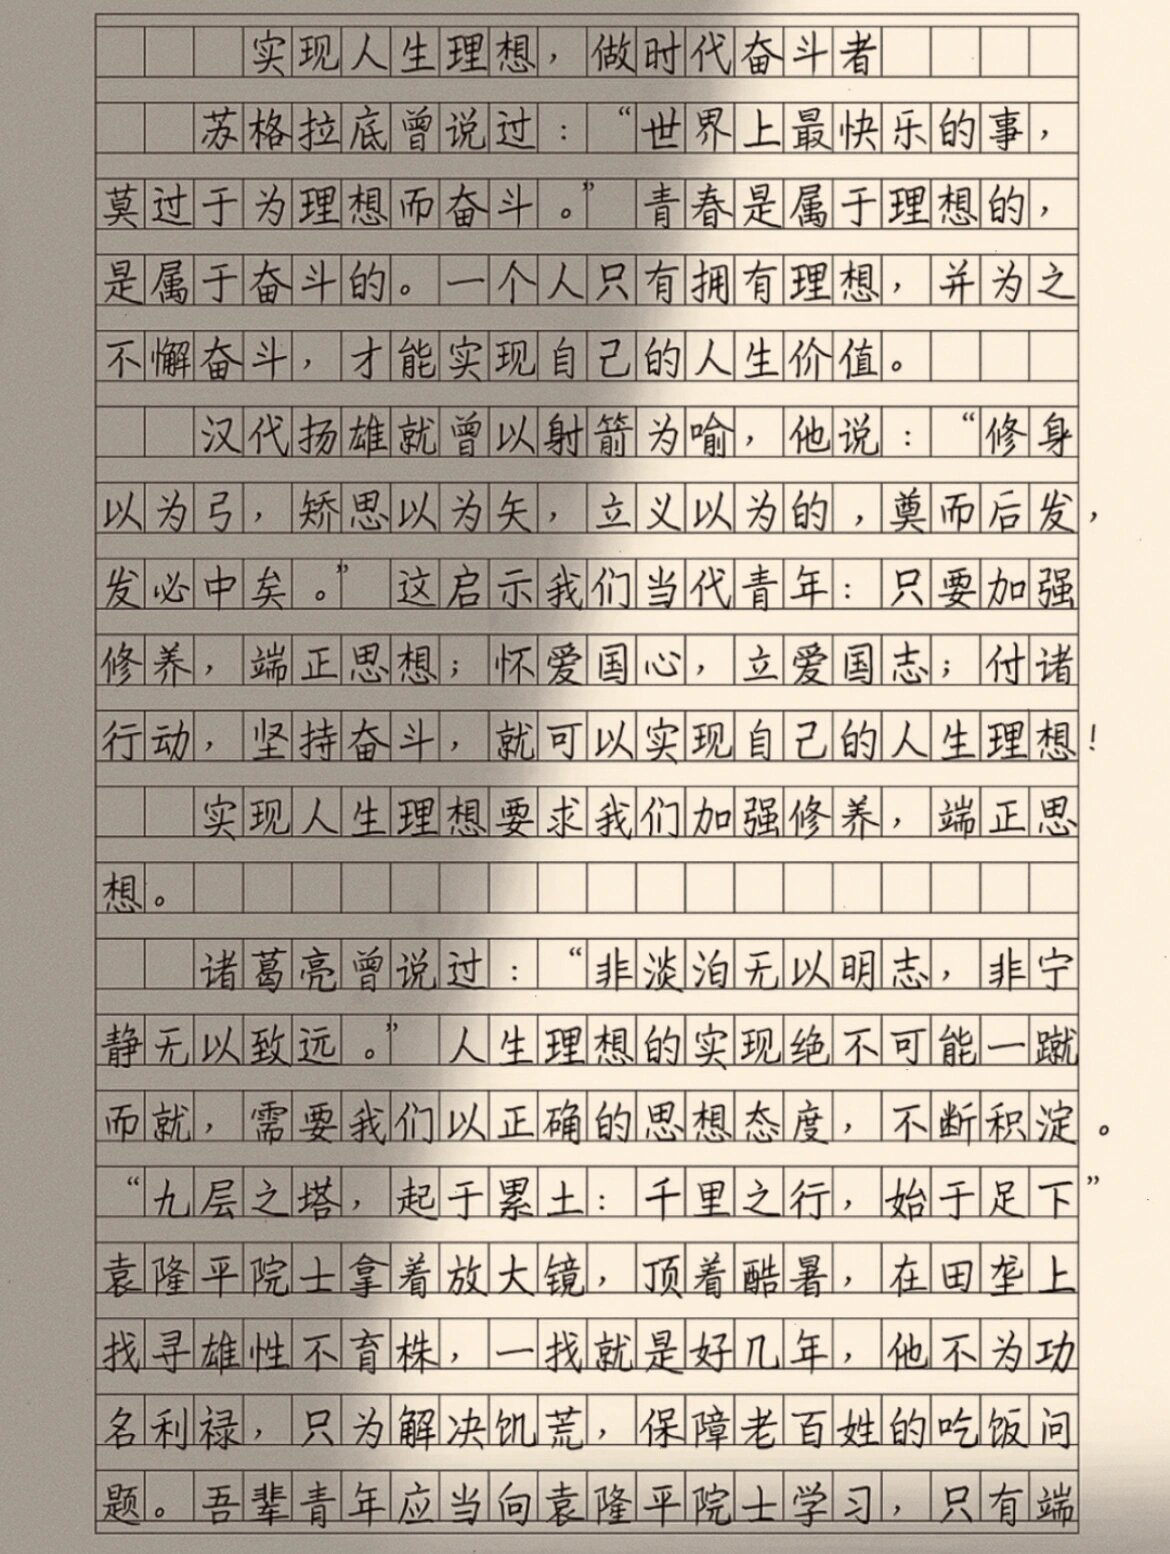 实现人生理想，做时代奋斗者
苏格拉底曾说过：“世界上最快乐的事，
莫过于为理想而奋斗。”青春是属于理想的，
是属于奋斗的。一个人只有拥有理想，并为之
不懈奋斗，才能实现自己的人生价值。
汉代扬雄就曾以射箭为喻，他说：“修身
以为弓，矫思以为矢，立义以为的，奠而后发，
发必中矣。”这启示我们当代青年：只要加强
修养，端正思想；怀爱国心，立爱国志；付诸
行动，坚持奋斗，就可以实现自己的人生理想！
实现人生理想要求我们加强修养，端正思
想。
诸葛亮曾说过：“非淡泊无以明志，非宁
静无以致远。”人生理想的实现绝不可能一蹴
而就，需要我们以正确的思想态度，不断积淀。
“九层之塔，起于累土：千里之行，始于足下”
袁隆平院士拿着放大镜，顶着酷暑，在田垄上
找寻雄性不育株，一找就是好几年，他不为功
名利禄，只为解决饥荒，保障老百姓的吃饭问
题。吾辈青年应当向袁隆平院士学习，只有端